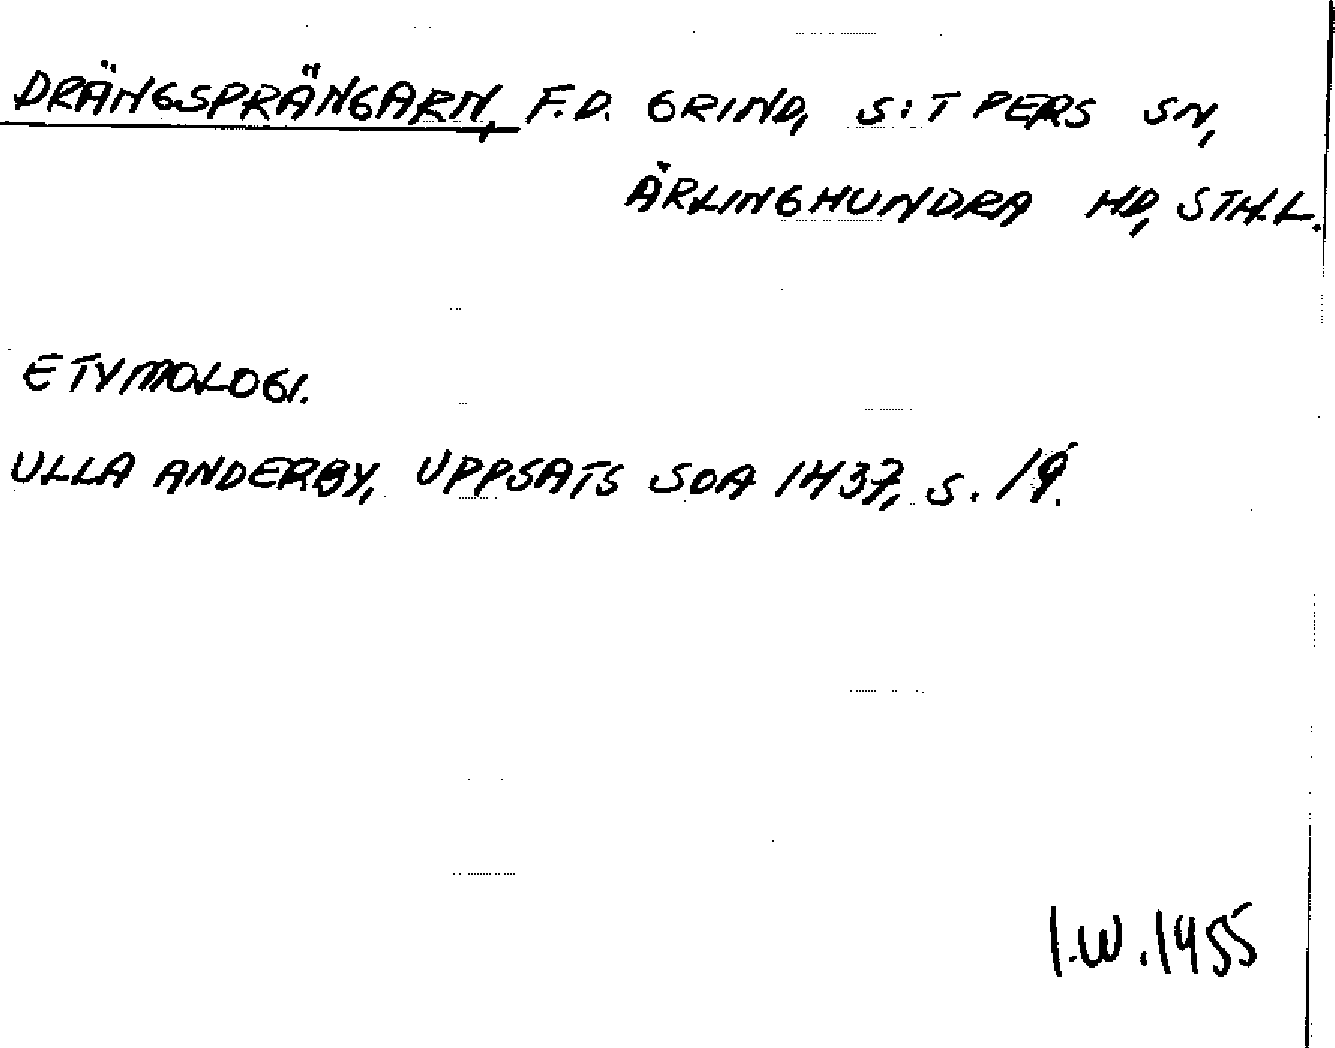 DRÄNGSPRÄNGARN, F.D. GRIND, S:T PERS SN,
ÄRLINGHUNDRA HD, STH.L.
ETYMOLOGI.
ULLA ANDERBY, UPPSATS SOA 1437, S. 19.
I.W. 1955